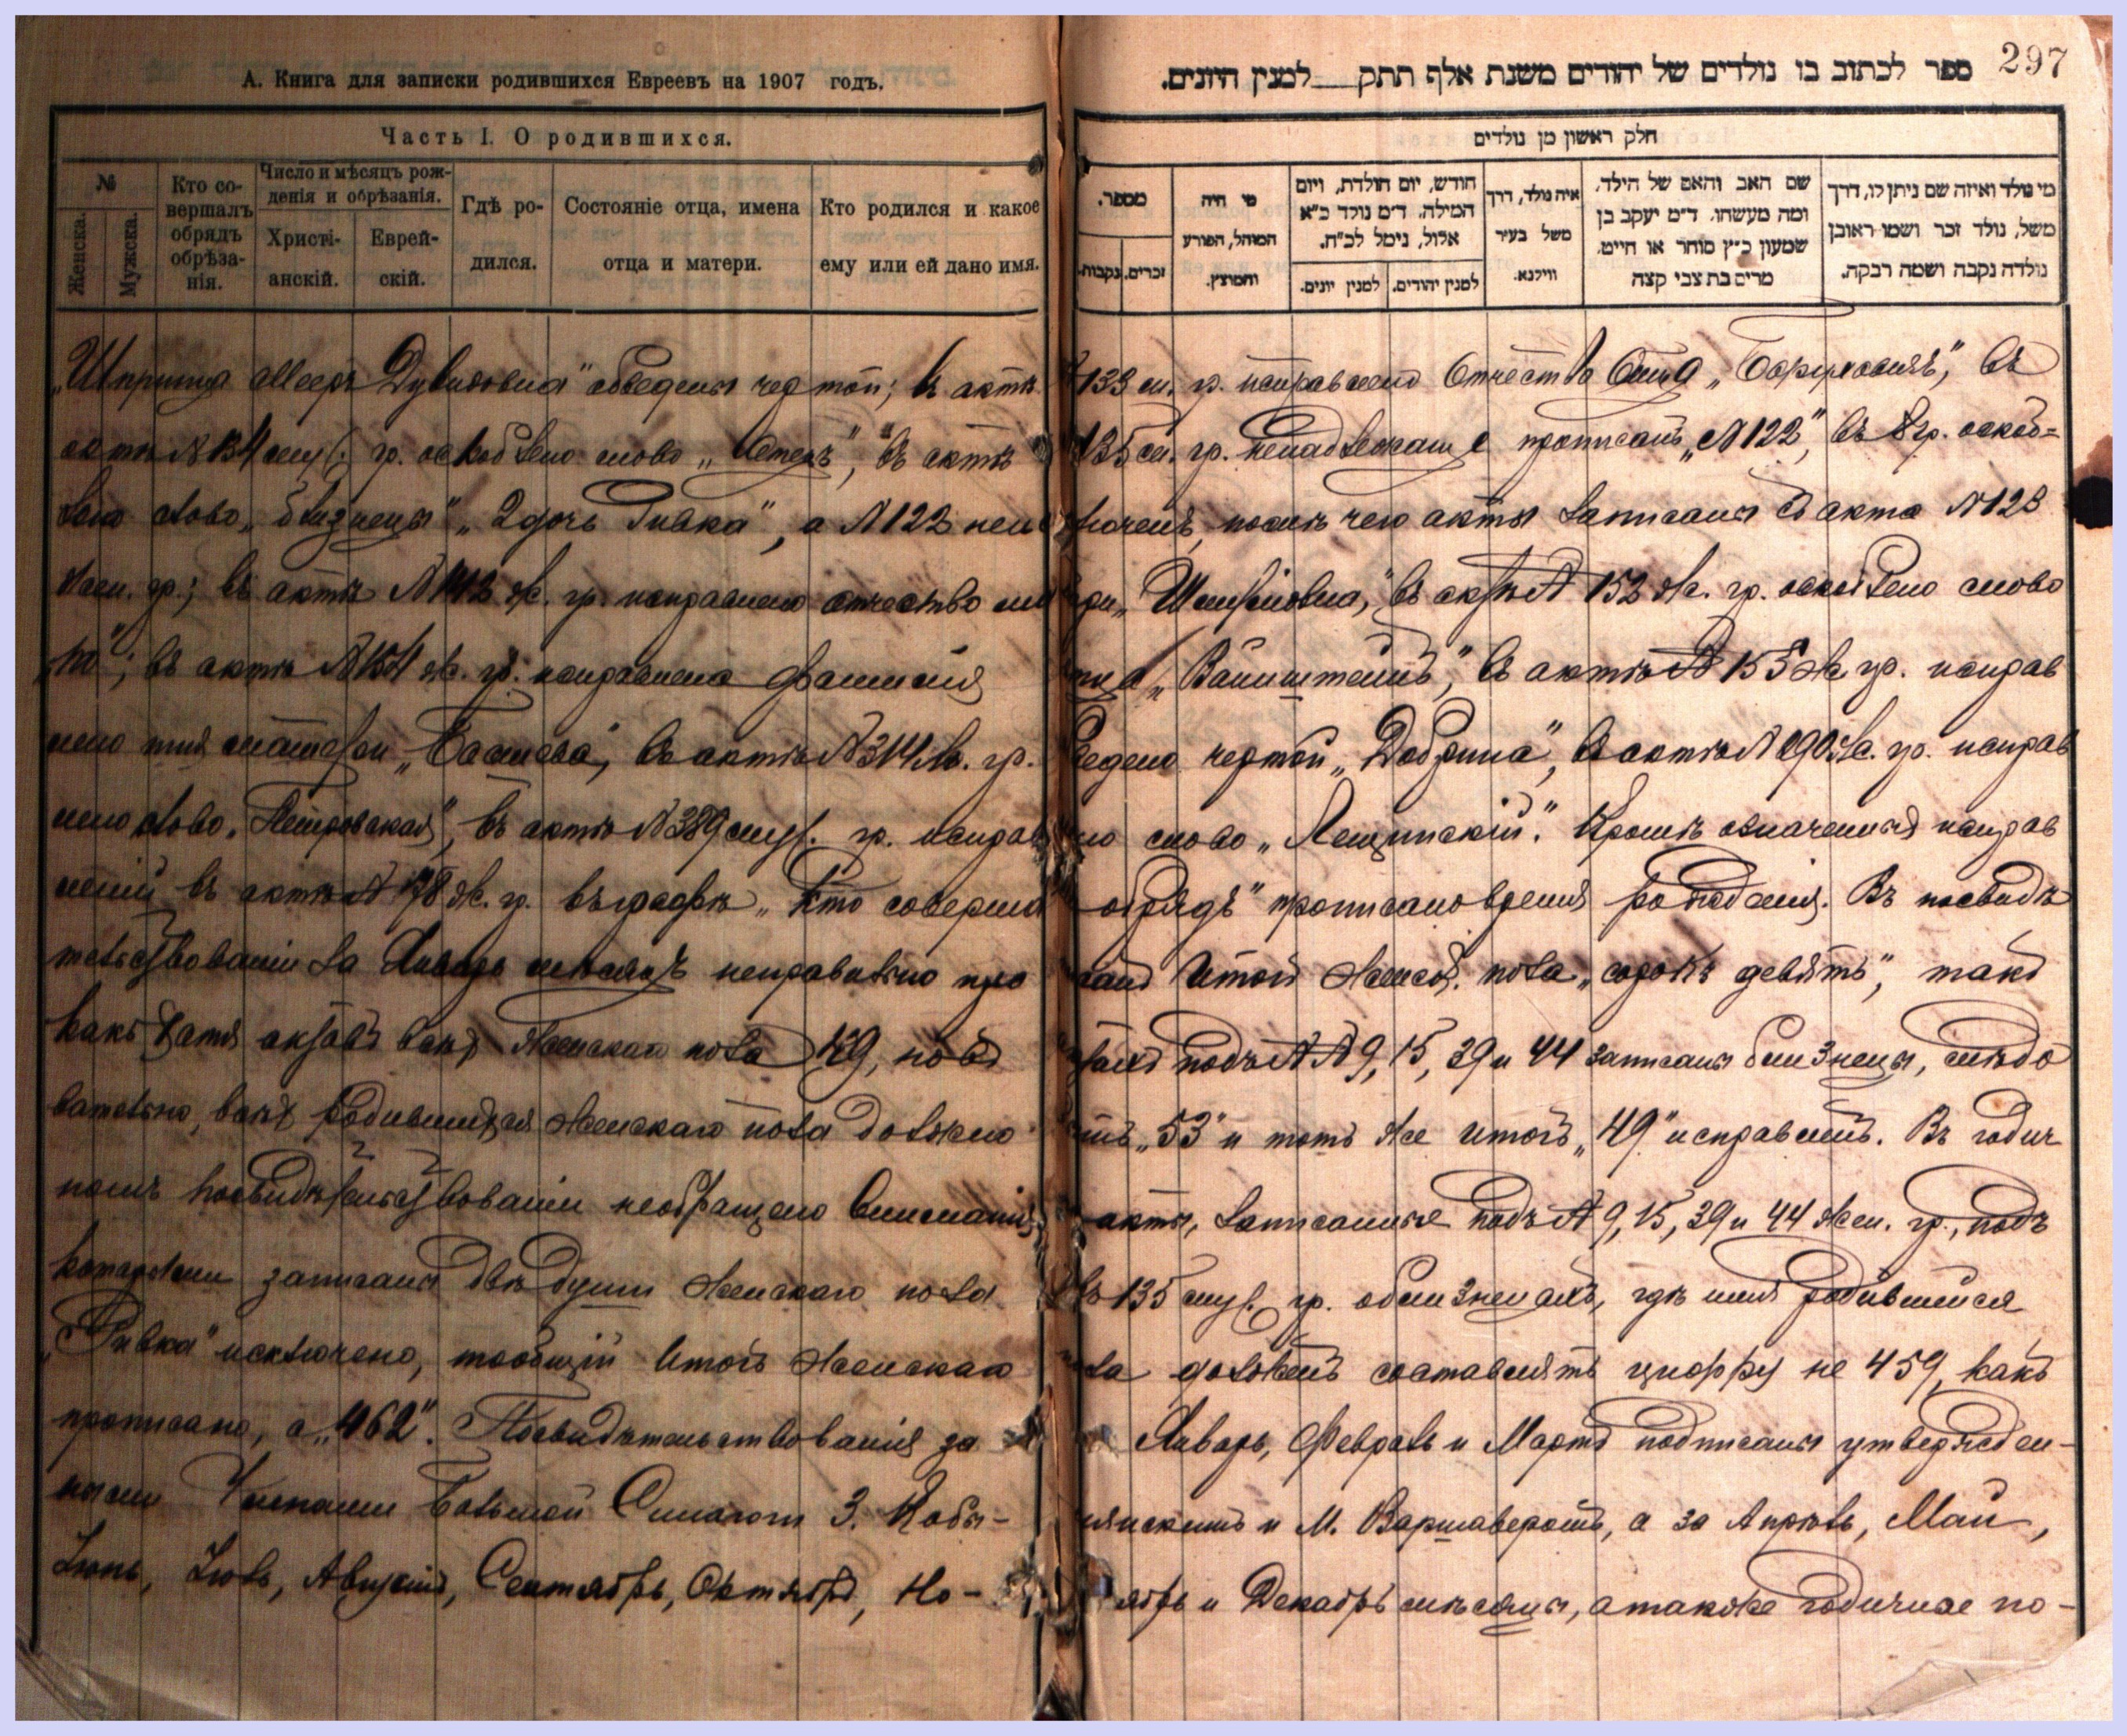 А. Книга для записки родившихся Евреевъ на 1907 годъ.
Часть I. О родившихся.
№
Женска.
Мужска.
Кто со-
вершалъ
обрядъ
обрѣза-
нія.
Число и мѣсяцъ рож-
денія и обрѣзанія.
Христі-
анскій.
Еврей-
скій.
Гдѣ ро-
дился.
Состояніе отца, имена
отца и матери.
Кто родился и какое
ему или ей дано имя.
297
ספר לכתוב בו נולדים של יהודים משנת אלף תתק למנין היונים.
חלק ראשון מן נולדים
מספר.
זכרים.
נקבות.
מי היה
המוהל, הפורע
והמוצץ.
חודש, יום הולדת, ויום
המילה. ד״מ נולד כ״א
אלול, נימל לכ״ח.
למנין יונים.
למנין יהודים.
איה נולד, דרך
משל בעיר
ווילנא.
שם האב והאם של הילד,
ומה מעשהו. ד״מ יעקב בן
שמעון כ״ץ סוחר או חייט,
מרים בת צבי קצה
מי נולד ואיזה שם ניתן לו, דרך
משל, נולד זכר ושמו ראובן
נולדה נקבה ושמה רבקה.
обведены чертой; въ актѣ 133 м. гр. исправлено отчество отца „Боруховичъ“, въ
актѣ №134 муж. гр. оскоблено слово въ актѣ 135 м. гр. прописанъ „№122“, въ 8 гр. оскоб=
лено слово „близнецы“ „2 дочь Ривка“, а №122 исключенъ, послѣ чего акты записаны съ акта №123
жен. гр.; въ актѣ ж. гр. исправлено отчество матери въ актѣ № 152 ж. гр. оскоблено слово
въ актѣ №154 ж. гр. исправлена фамилія отца „Вайнштейнъ“, въ актѣ № 155 ж. гр. исправ
лено имя матери въ актѣ №314 м. гр. обведено чертой „Добрина“, въ актѣ ж. гр. исправ
лено слово „Петровская“, въ актѣ №389 муж. гр. исправлено слово „Лещинскій“. Кромѣ означенныхъ исправ
леній въ актѣ ж. гр. въ графѣ „Кто совершалъ обрядъ“ прописано время рожденія. Въ посвидѣ
тельствованіи за Январь мѣсяцъ неправильно прописанъ итогъ женск. пола „сорокъ девять“, такъ
какъ хотя актовъ всѣхъ женскаго пола 49, но въ актахъ подъ №№9, 15, 39 и 44 записаны близнецы, слѣдо
вательно, всѣхъ родившихся женскаго пола должно быть „53“ и тотъ же итогъ „49“ исправить. Въ годич
номъ посвидѣтельствованіи необращено вниманія на акты, записанные подъ № 9, 15, 39 и 44 жен. гр., подъ
которыми записаны двѣ души женскаго пола 135 муж. гр. о близнецахъ, гдѣ имя родившейся
„Ривка“ исключено, то общій итогъ женскаго пола долженъ составлять цифру не 459, какъ
прописано, а „462“. Посвидѣтельствованія за Январь, Февраль и Мартъ подписаны утвержден-
ными Членами Большой Синагоги З. Кобы-лянскимъ и М. Варшаверомъ, а за Апрѣль, Май,
Іюнь, Іюль, Августъ, Сентябрь, Октябрь, Но-ябрь и Декабрь мѣсяцы, а также годичное по-